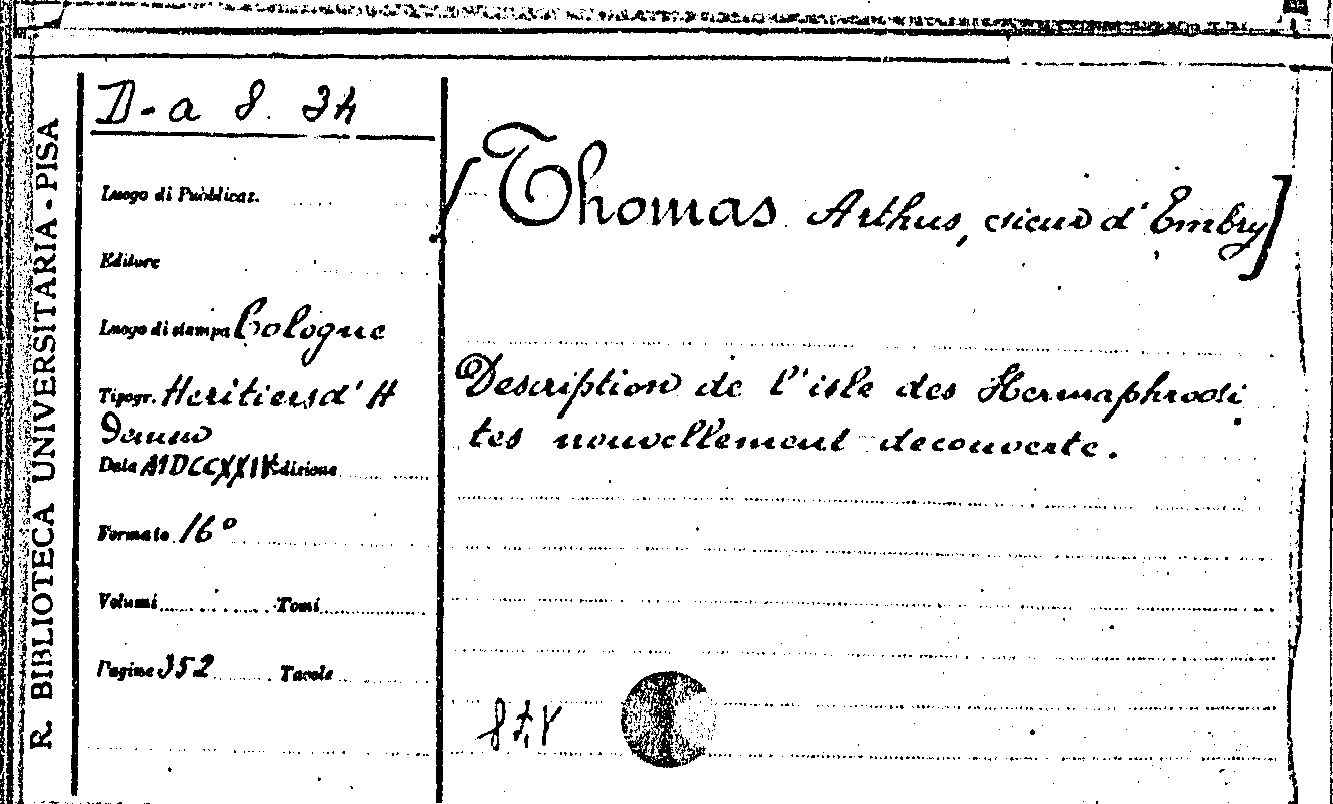 R. BIBLIOTECA UNIVERSITARIA - PISA
D-a 8. 34
Luogo di Pubblicaz.
Editore
Luogo di stampa Cologne
Tipogr. Heritiers d' H
Demen
Data MDCCXXIV Edizione
Formato 16°
Volumi Tomi
Pagine 352 Tavole
[Thomas Arthus, sieur d' Embry]
Description de l'isle des Hermaphrodi
tes nouvellement decouverte.